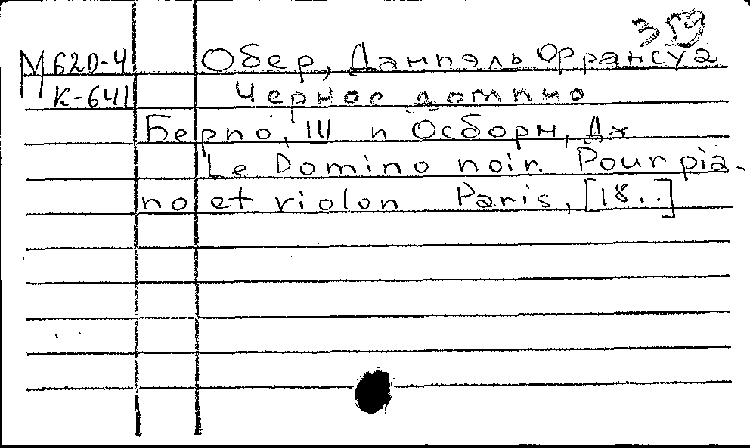 319
М 620-4 Обер, Даниэль Франсуа
К-641 Черное домино
Берио, Ш и Осборн, Дж
Le Domino noir. Pour pia-
no et violon Paris, [18..]